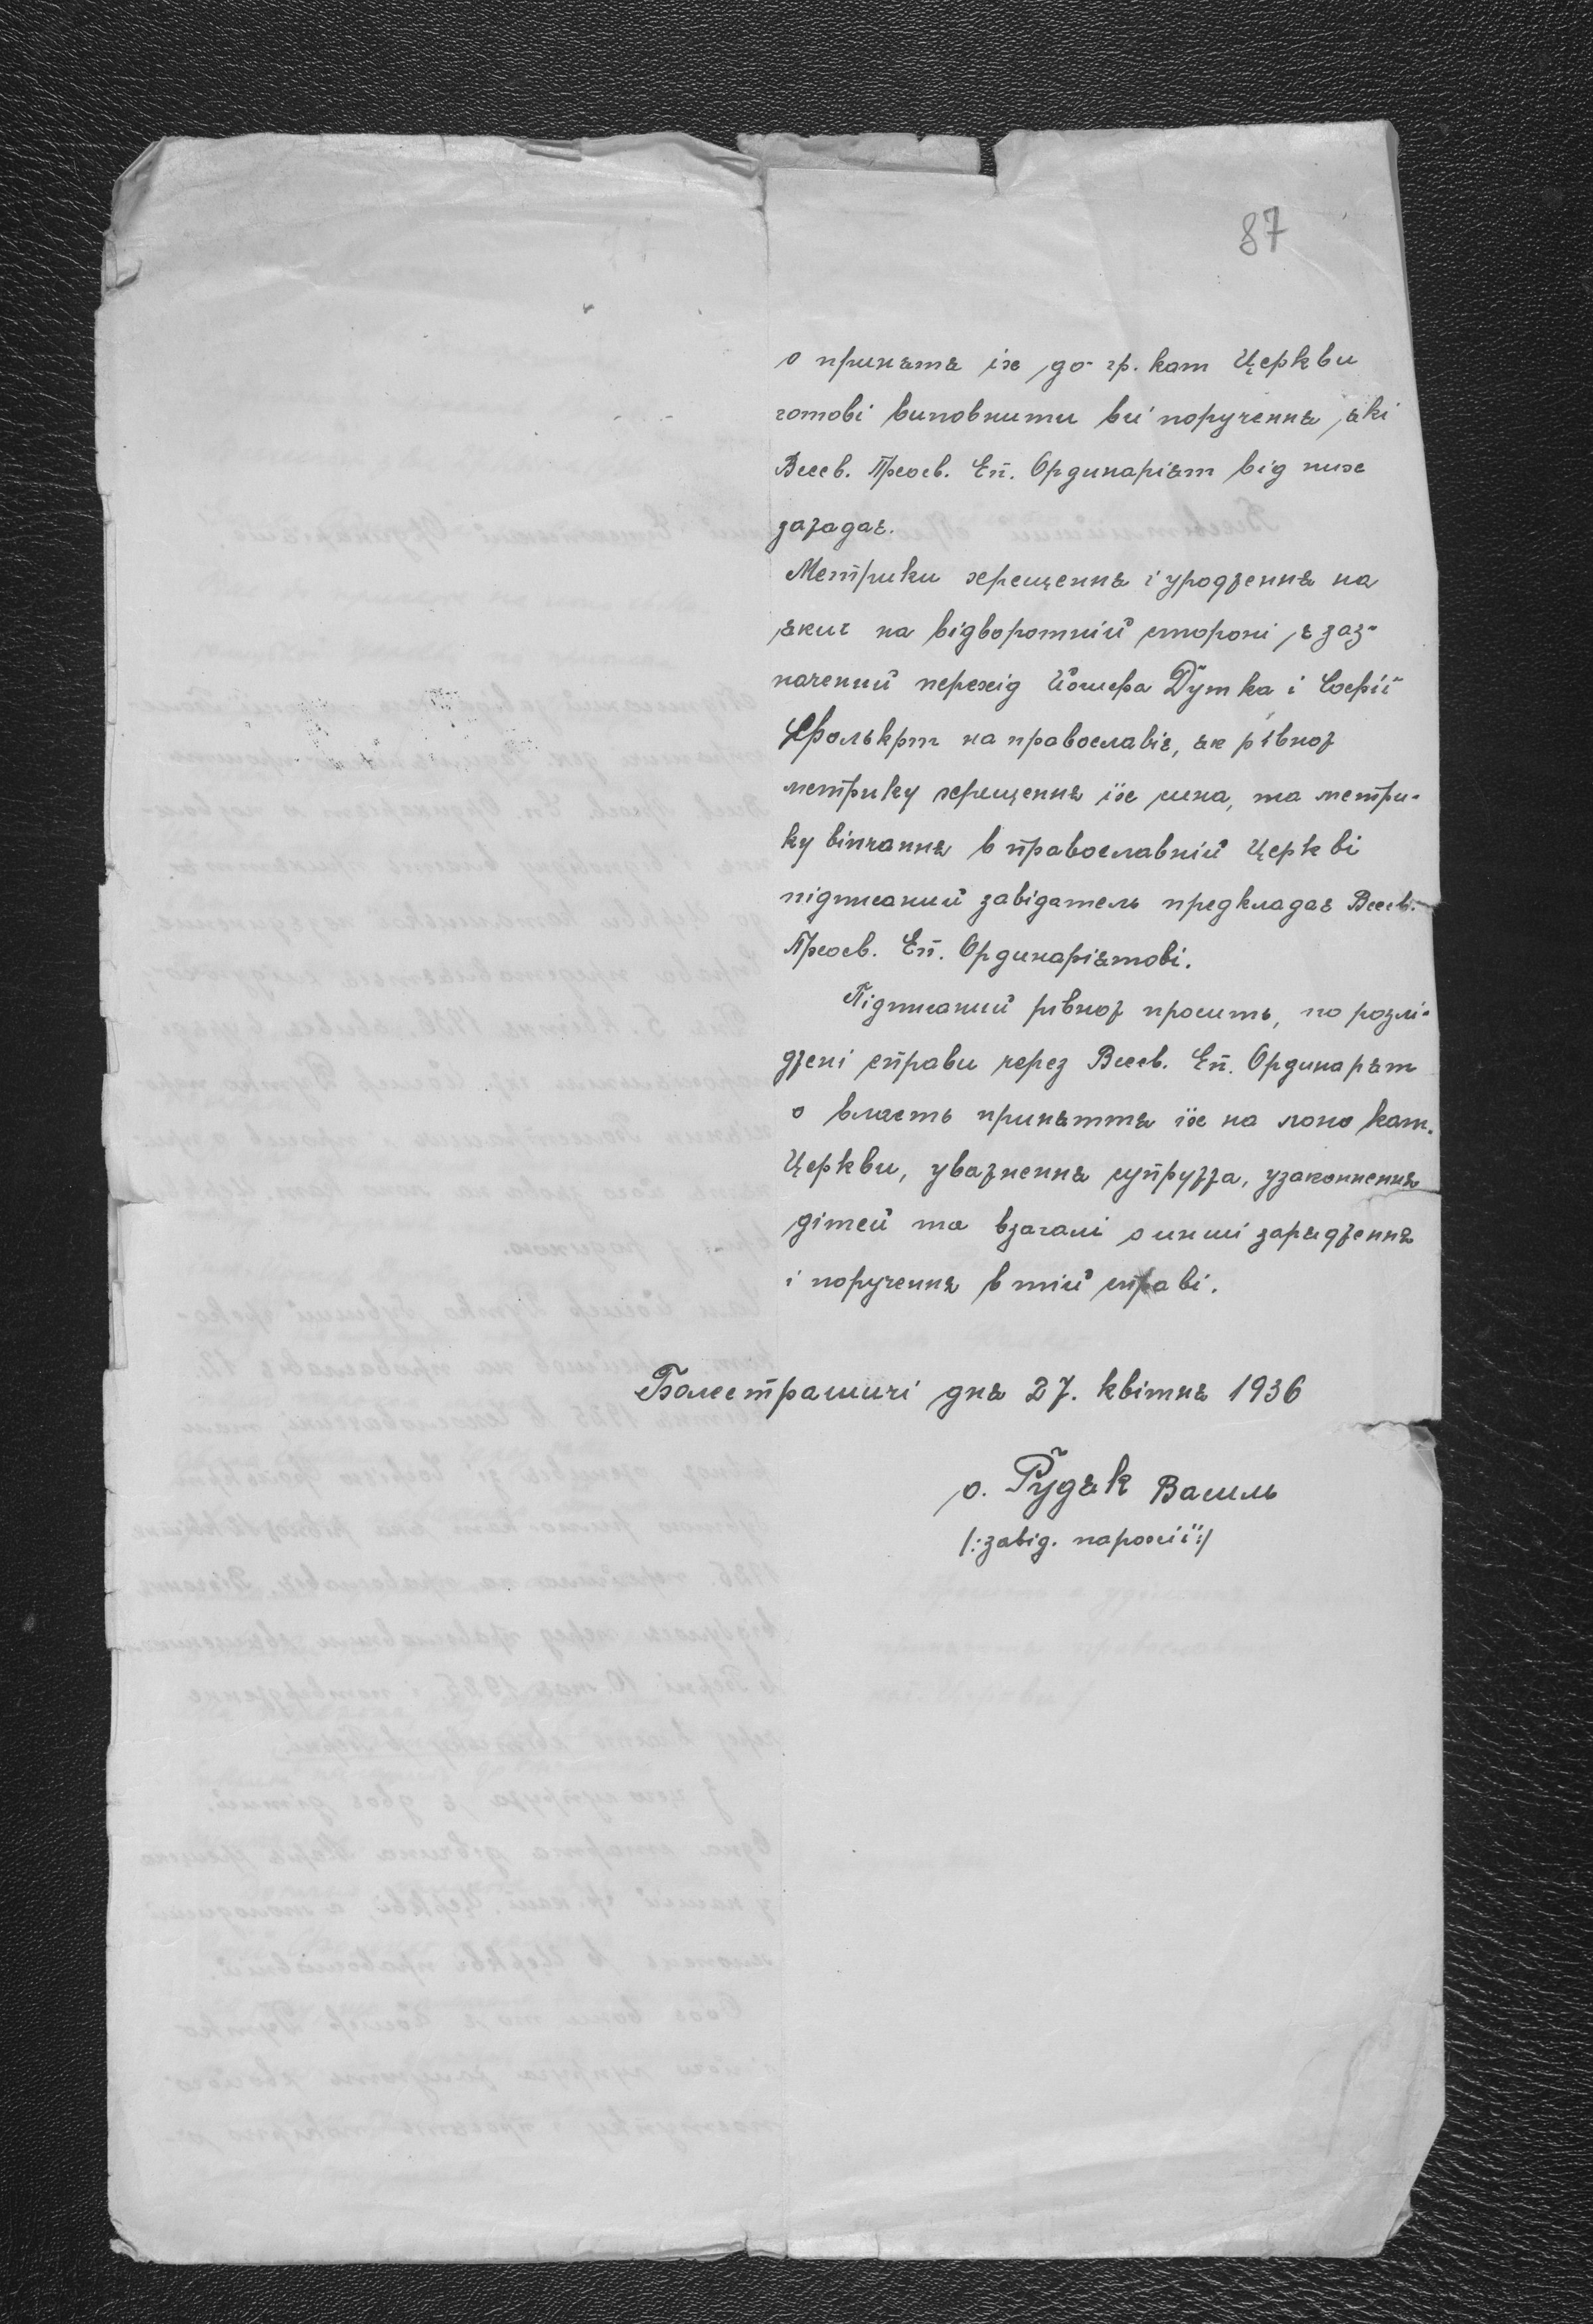 87
о принятя іх до гр. кат Церкви
готові виповнити всі поручення, які
Всесв. Преосв. Еп. Ординаріят від них
зажадає.
Метрики хрещення і уродження на
яких на відворотній стороні є заз-
начений перехід Йосифа Дутка і Софії
Фолькрт на православіє, як рівнож
метрику хрещення їх сина, та метри-
ку вінчання в православній Церкві
підписаний завідатель предкладає Всесв.
Преосв. Еп. Ординаріятові.
Підписаний рівнож просить, по розслі-
джені справи через Всесв. Еп. Ординарят
о власть приняття їх на лоно кат.
Церкви, уважнення супружжа, узаконнення
дітей та взагалі о инші зарядження
і поручення в тій справі.
Болестрашичі дня 27. квітня 1936
о. Рудяк Василь
/:завід. парохії:/